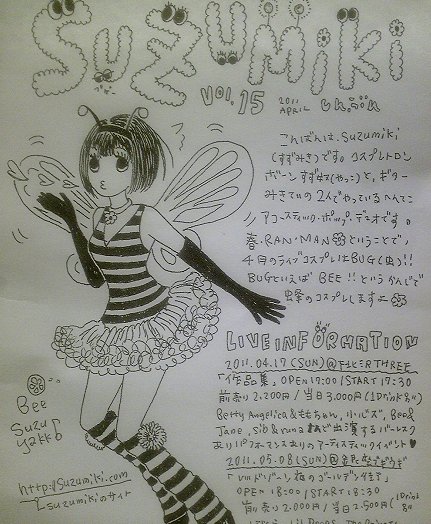 SUZUMIKI
VOL.15
2011
APRIL
しんぶん
こんばんは、Suzumiki
(すずみき)です。コスプレトロン
ボーン すず奴(やっこ)と、ギター
みきてぃの 2人でやっているへんてこ
アコースティック・ポップ・デュオです。
春・RAN・MAN ということで、
4月のライブコスプレはBUG(虫)!!
BUGといえば BEE!! というかんじで
蜂のコスプレします
LIVE INFORMATION
2011.04.17(SUN)@下北沢THREE
「作品集」OPEN 17:00/START 17:30
前売り2,200円/当日3,000円(1Drink
Betty Angelica&ももちゃん,
Jane, sib&runa など出演する バーレスク
ありパフォーマンスありのアーティスティックイベント
2011.05.08(SUN)@
OPEN 18:00/START 18:30
前売り2,000円/当日2,500円(1Drink
Bee
Suzu
yakko
http://Suzumiki.com
suzumikiのサイト